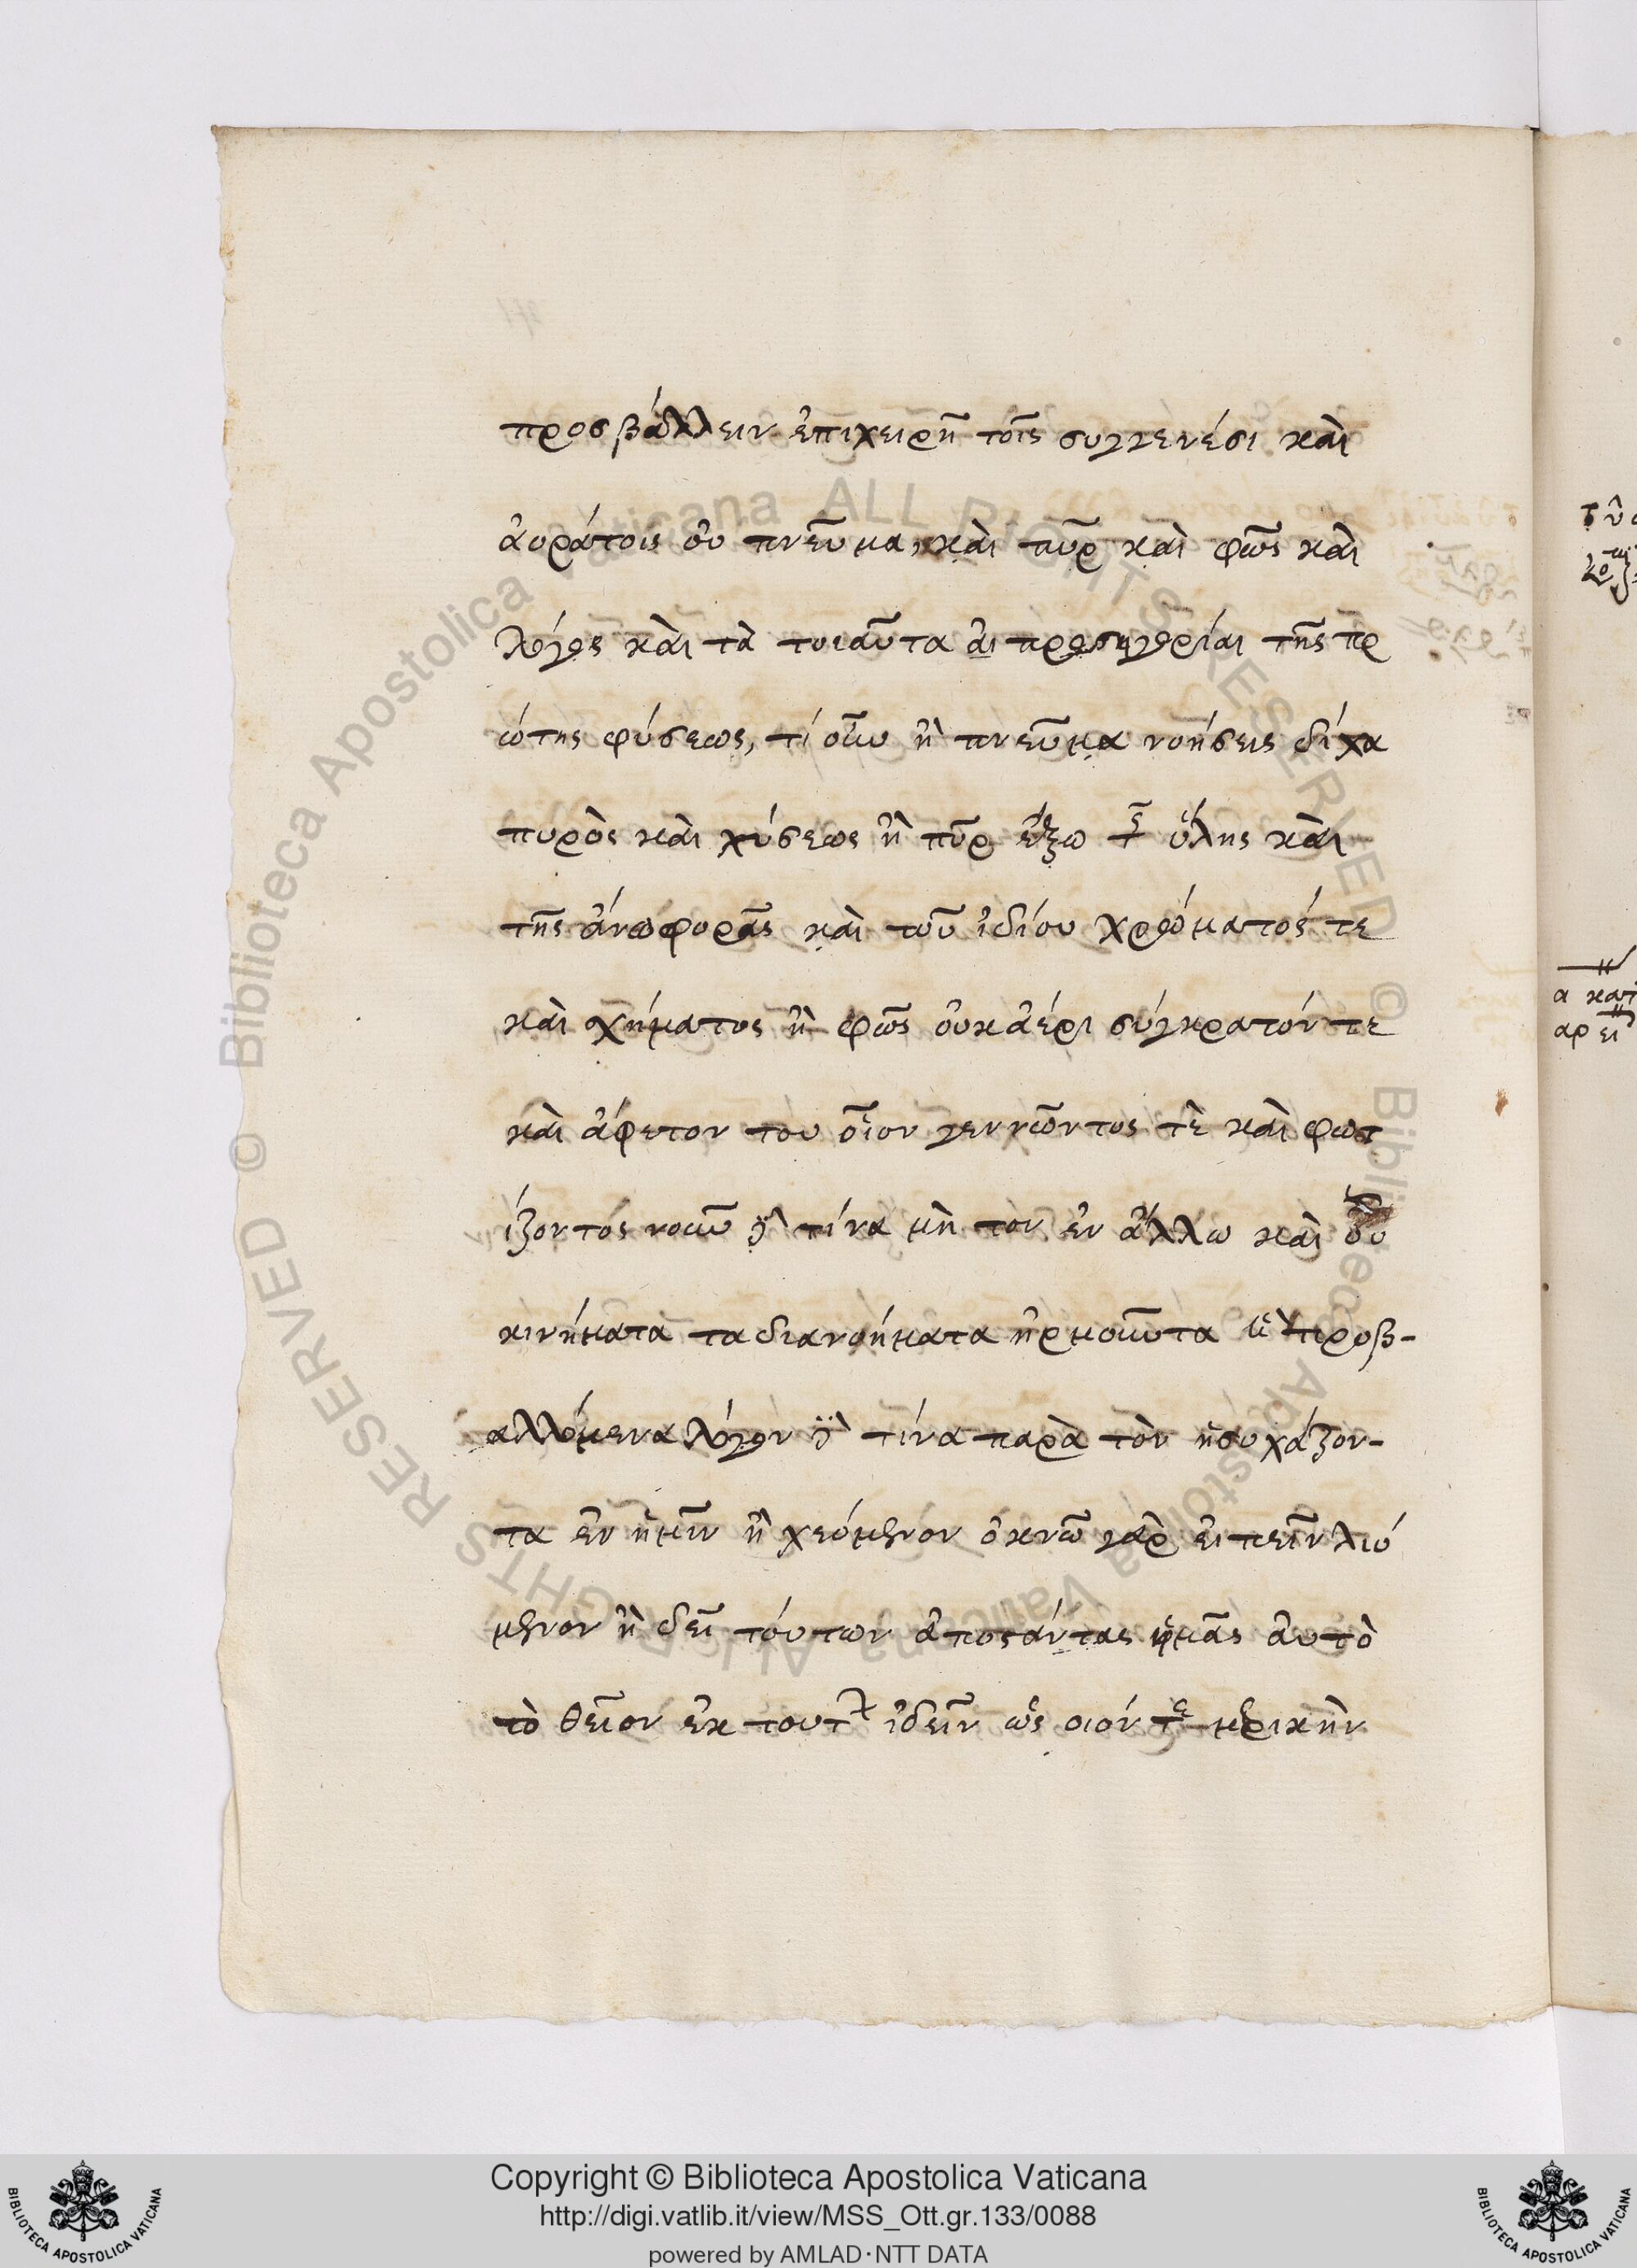 προσβάλλειν ἐπιχειρῆ τοῖς συγγενέσι καὶ
ἀοράτοις οὐ πνεῦμα, καὶ πῦρ καὶ φῶς καὶ
λόγος καὶ τὰ τοιαῦτα ἁι προσηγορίαι τῆς πρ
ώτης φύσεως, τί οὖν ἢ πνεῦμα νοήσεις δίχα
πυρὸς καὶ χύσεως ἢ πῦρ ἔξω τ ὕλης καὶ
τῆς ἄνωφορᾶς καὶ τοῦ ἰδίου χρώματός τε
καὶ σχήματος ἢ φῶς ὀυκ ἀέρι σύγκρατόν τε
καὶ ἄφετον του οἷον γεννῶντος τὲ καὶ φωτ
ίζοντός νοῦν δ τίνα μὴ τον ἐν ἄλλω καὶ οὗ
κινήματα τα διανοήματα ἠρμοῦντα ἢ προβ-
αλλόμενα λόγον δ τίνα παρὰ τὸν ἡσυχάζον-
τα ἐν ἡμῖν ἢ χεόμενον ὀκνῶ γὰρ ἐιπεῖν λυό
μενον ἢ δεῖ τόυτων ἀποστάντας ἡμᾶς ἀυτὸ
τὸ θεῖον ἐκ τουτ ἰδεῖν ὡς οιόν τε μερικὴν
Copyright © Biblioteca Apostolica Vaticana
http://digi.vatlib.it/view/MSS_Ott.gr.133/0088
powered by AMLAD·NTT DATA
BIBLIOTECA APOSTOLICA VATICANA
BIBLIOTECA APOSTOLICA VATICANA